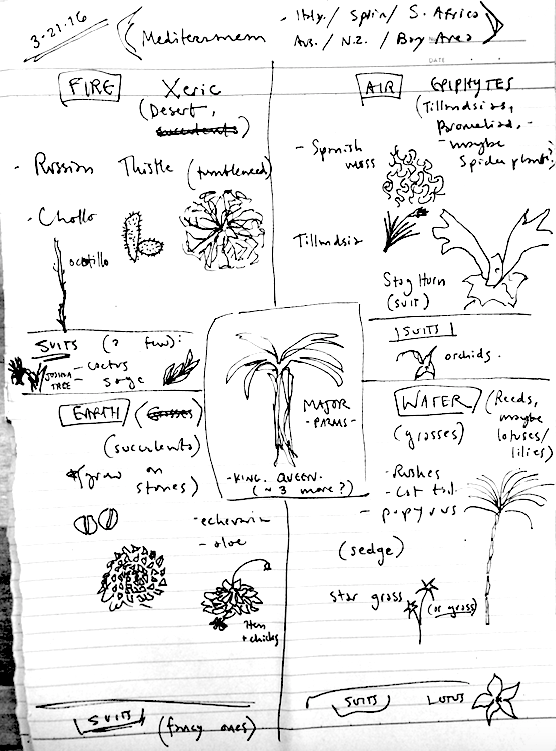 3-21-16
(Mediterranean
- Italy / Spain / S. Africa
Aus. / N.Z. / Bay Area
DATE
FIRE
Xeric
(Desert,
succulents)
- Russian Thistle (tumbleweed)
- Cholla
ocotillo
SUITS (a few):
JOSHUA TREE
- cactus
- sage
AIR
EPIPHYTES
(Tillandsias,
Bromeliad,
- maybe
Spider plants?)
- Spanish
moss
Tillandsia
Stag Horn
(suit)
SUITS
orchids.
MAJOR
- PALMS -
- KING. QUEEN.
(~ 3 more?)
EARTH (Grasses)
(succulents)
(grow on
stones)
- echeveria
- aloe
Hen
+ chicks
SUITS (fancy ones)
WATER
(Reeds,
maybe
lotuses/
lilies)
(grosses)
- Rushes
- Cat tail
- papyrus
(sedge)
star grass
(or grass)
SUITS LOTUS